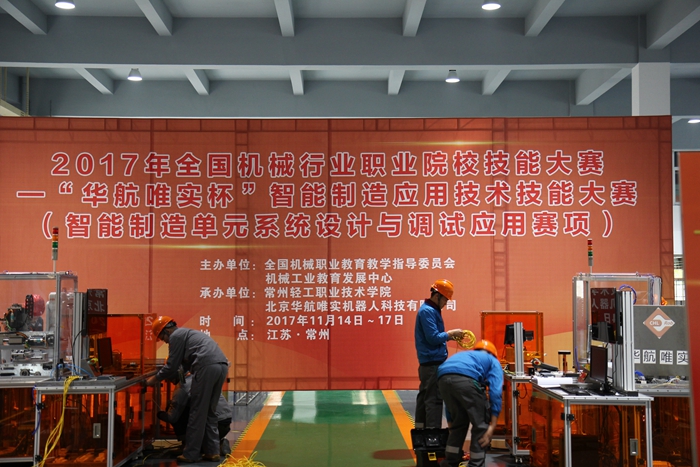 2017年全国机械行业职业院校技能大赛
—“华航唯实杯”智能制造应用技术技能大赛
（智能制造单元系统设计与调试应用赛项）
主办单位：全国机械职业教育教学指导委员会
机械工业教育发展中心
承办单位：常州轻工职业技术学院
北京华航唯实机器人科技有限公司
时 间：2017年11月14日～17日
地 点：江苏·常州
华航唯实